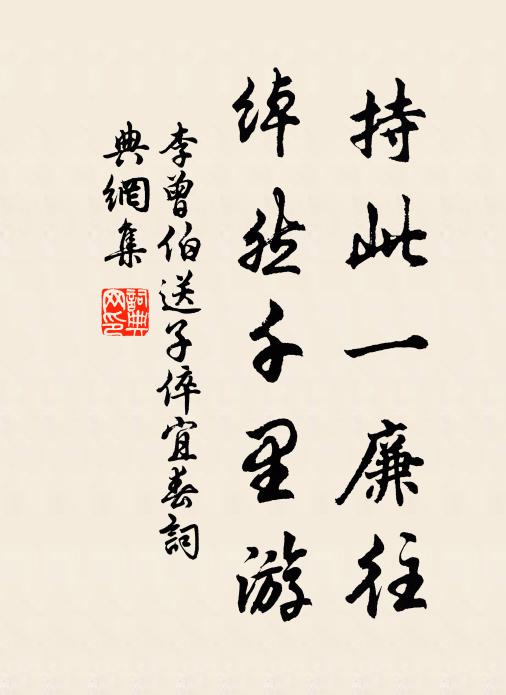 持此一廉往
綽然千里游
李曾伯送子倅宜春詞
典網集
詞典
网印